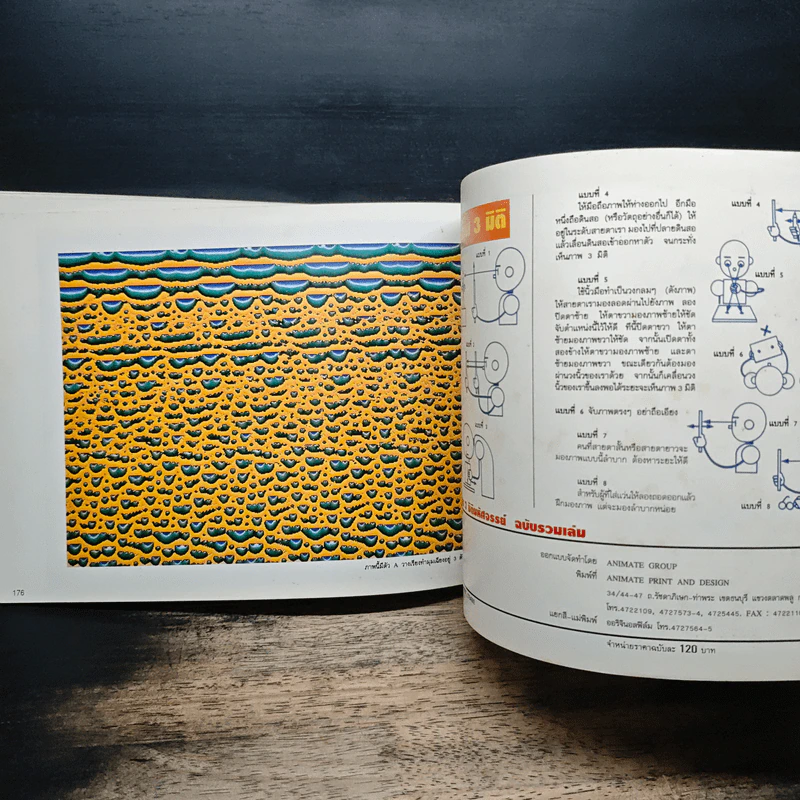 ภาพนี้มีตัว A วางเรียงทำมุมเฉียงอยู่ 3
176
3 มิติ
แบบที่ 1
แบบที่ 3
แบบที่ 4
ให้มือถือภาพให้ห่างออกไป อีกมือ
หนึ่งถือดินสอ (หรือวัตถุอย่างอื่นก็ได้) ให้
อยู่ในระดับสายตาเรา มองไปที่ปลายดินสอ
แล้วเลื่อนดินสอเข้าออกหาตัว จนกระทั่ง
เห็นภาพ 3 มิติ
แบบที่ 5
ใช้นิ้วมือทำเป็นวงกลมๆ (ดังภาพ)
ให้สายตาเรามองลอดผ่านไปยังภาพ ลอง
ปิดตาซ้าย ให้ตาขวามองภาพซ้ายให้ชัด
จับตำแหน่งนี้ไว้ให้ดี ทีนี้ปิดตาขวา ให้ตา
ซ้ายมองภาพขวาให้ชัด จากนั้นเปิดตาทั้ง
สองข้างให้ตาขวามองภาพซ้าย และตา
ซ้ายมองภาพขวา ขณะเดียวกันต้องมอง
ผ่านวงนิ้วของเราด้วย จากนั้นก็เคลื่อนวง
นิ้วของเราขึ้นลงพอได้ระยะจะเห็นภาพ 3 มิติ
แบบที่ 6 จับภาพตรงๆ อย่าถือเอียง
แบบที่ 7
คนที่สายตาสั้นหรือสายตายาวจะ
มองภาพแบบนี้ลำบาก ต้องหาระยะให้ดี
แบบที่ 8
สำหรับผู้ที่ใส่แว่นให้ลองถอดออกแล้ว
ฝึกมองภาพ แต่จะมองลำบากหน่อย
แบบที่ 4
แบบที่ 5
แบบที่ 6
แบบที่ 7
แบบที่ 8
มหัศจรรย์ ฉบับรวมเล่ม
ออกแบบจัดทำโดย ANIMATE GROUP
พิมพ์ที่ ANIMATE PRINT AND DESIGN
34/44-47 ถ.รัชดาภิเษก-ท่าพระ เขตธนบุรี แขวงตลาดพลู
โทร.4722109, 4727573-4, 4725445. FAX :
แยกสี-แม่พิมพ์ ออริจินอลฟิล์ม โทร.4727564-5
จำหน่ายราคาฉบับละ 120 บาท